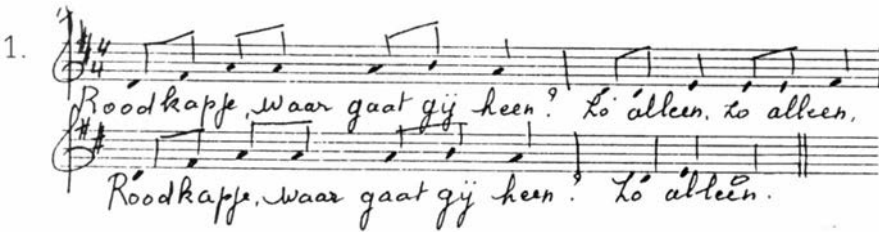 1.
4
4
Roodkapje, waar gaat gij heen? Zo alleen, zo alleen,
Roodkapje, waar gaat gij heen? Zo alleen.